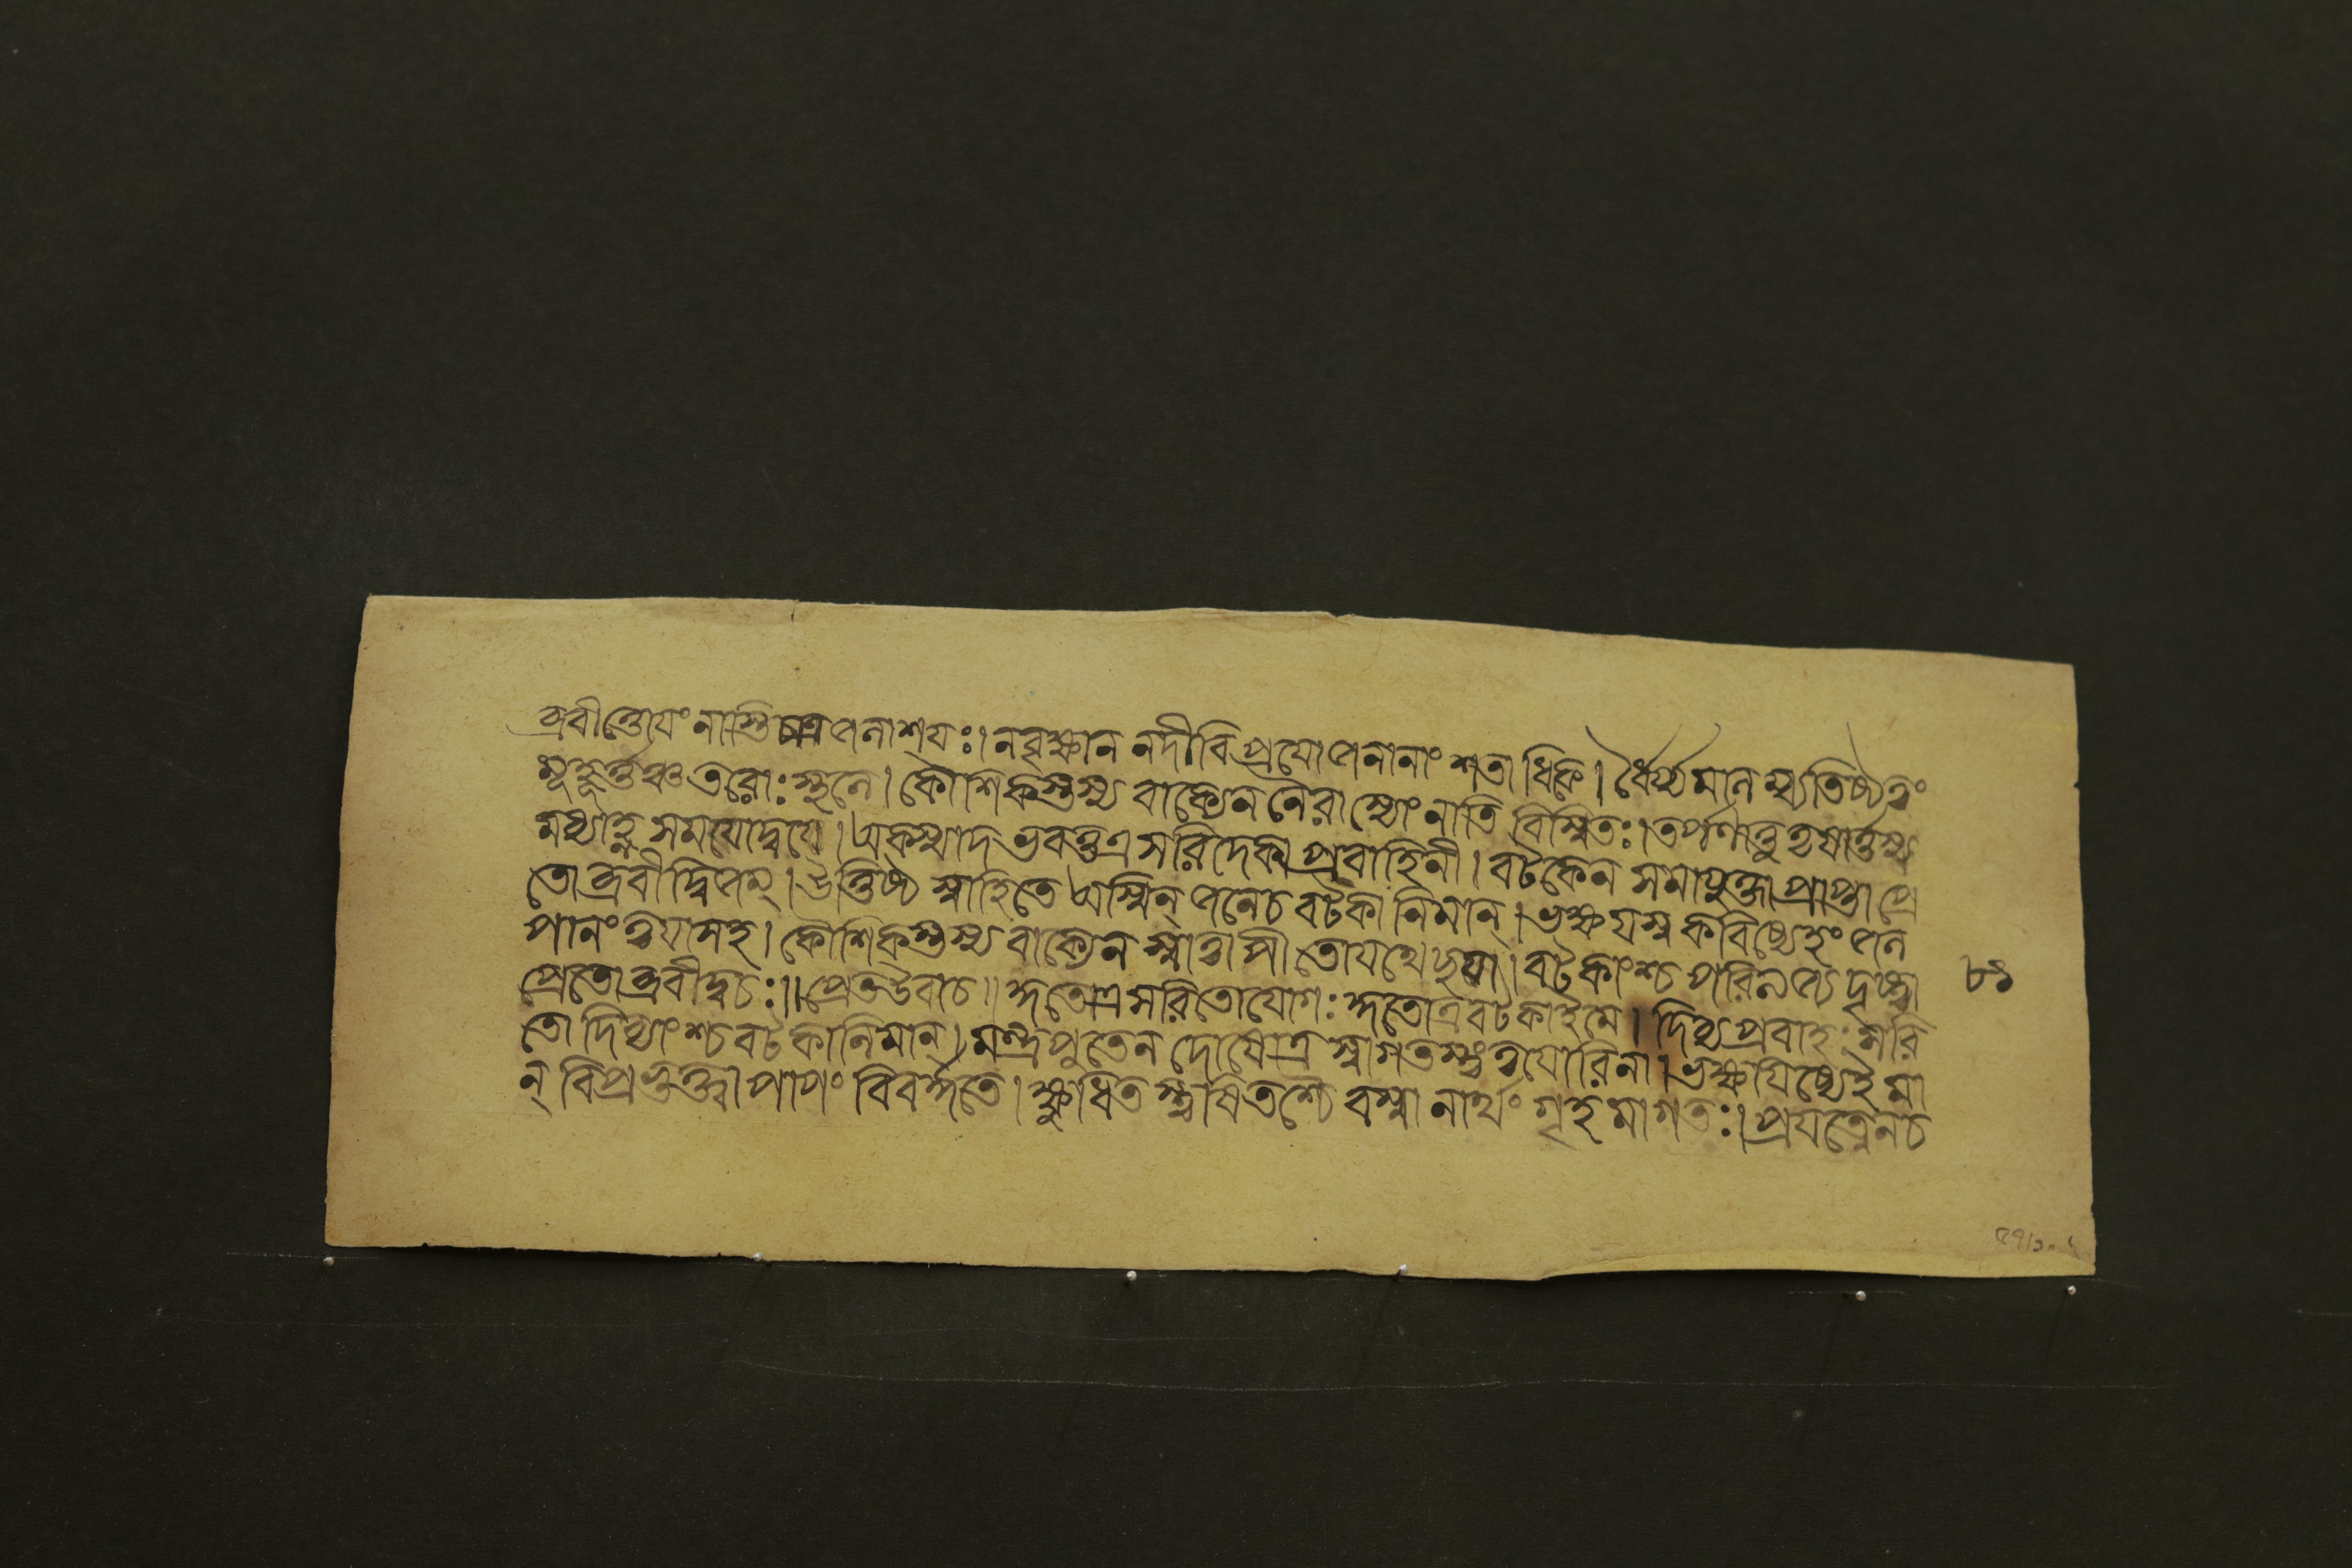 ব্রবীত্তোযং নাস্তি চাত্র জনাশ্রযঃ। ন বৃক্ষা ন নদী বিপ্র যোজনানাং শতাধিকে। ধৈর্য্যমানম্ব্য তিষ্ঠ ত্বং
মূহূর্ত্তঞ্চ তরোঃ স্থলে। কৌশিকস্তস্য বাক্যেন নৈরাস্যেং নাতি বিস্মিতঃ। তর্পণাত্তু তৃষার্ত্তস্য
মধ্যাহ্ন সমযোদ্বযে। অকস্মাদভবত্তত্র সরিদেকা প্রবাহিনী। বটকেন সমাযুক্তা প্রাপ্তা প্রে
তো ব্রবীদ্দ্বিজন্। উত্তিষ্ঠ স্নাহি তে অস্মিন্ জলে চ বটকানিমান্। ভক্ষযস্ব করিষ্যেহং জল
পানং ত্বযাসহ। কৌশিকস্তস্য বাক্যেন স্নাত্বা পীতো যথেছযা। বটকাংশ্চ পরিত্যজ্য দৃষ্ট্বা
প্রেতোব্রবীদ্বচঃ॥ প্রেতউবাচ॥ কুতোত্র সরিতোযোগঃ কুতোত্র বটকাইমে। দিব্য প্রবাহঃ সরি
তো দিব্যাংশ্চ বটকানিমান্। মন্ত্রপুতেন দোষোত্র স্বাগতস্ত্বং ত্বযোরিনা। ভক্ষাযিষ্যেই মা
ন্ বিপ্র ভুক্ত্বা পাপং বিবর্জ্জতে। ক্ষুধিতস্তৃষিতশ্চৈব স্নানার্থং গৃহমাগতঃ। প্রযত্নেন চ
৮১